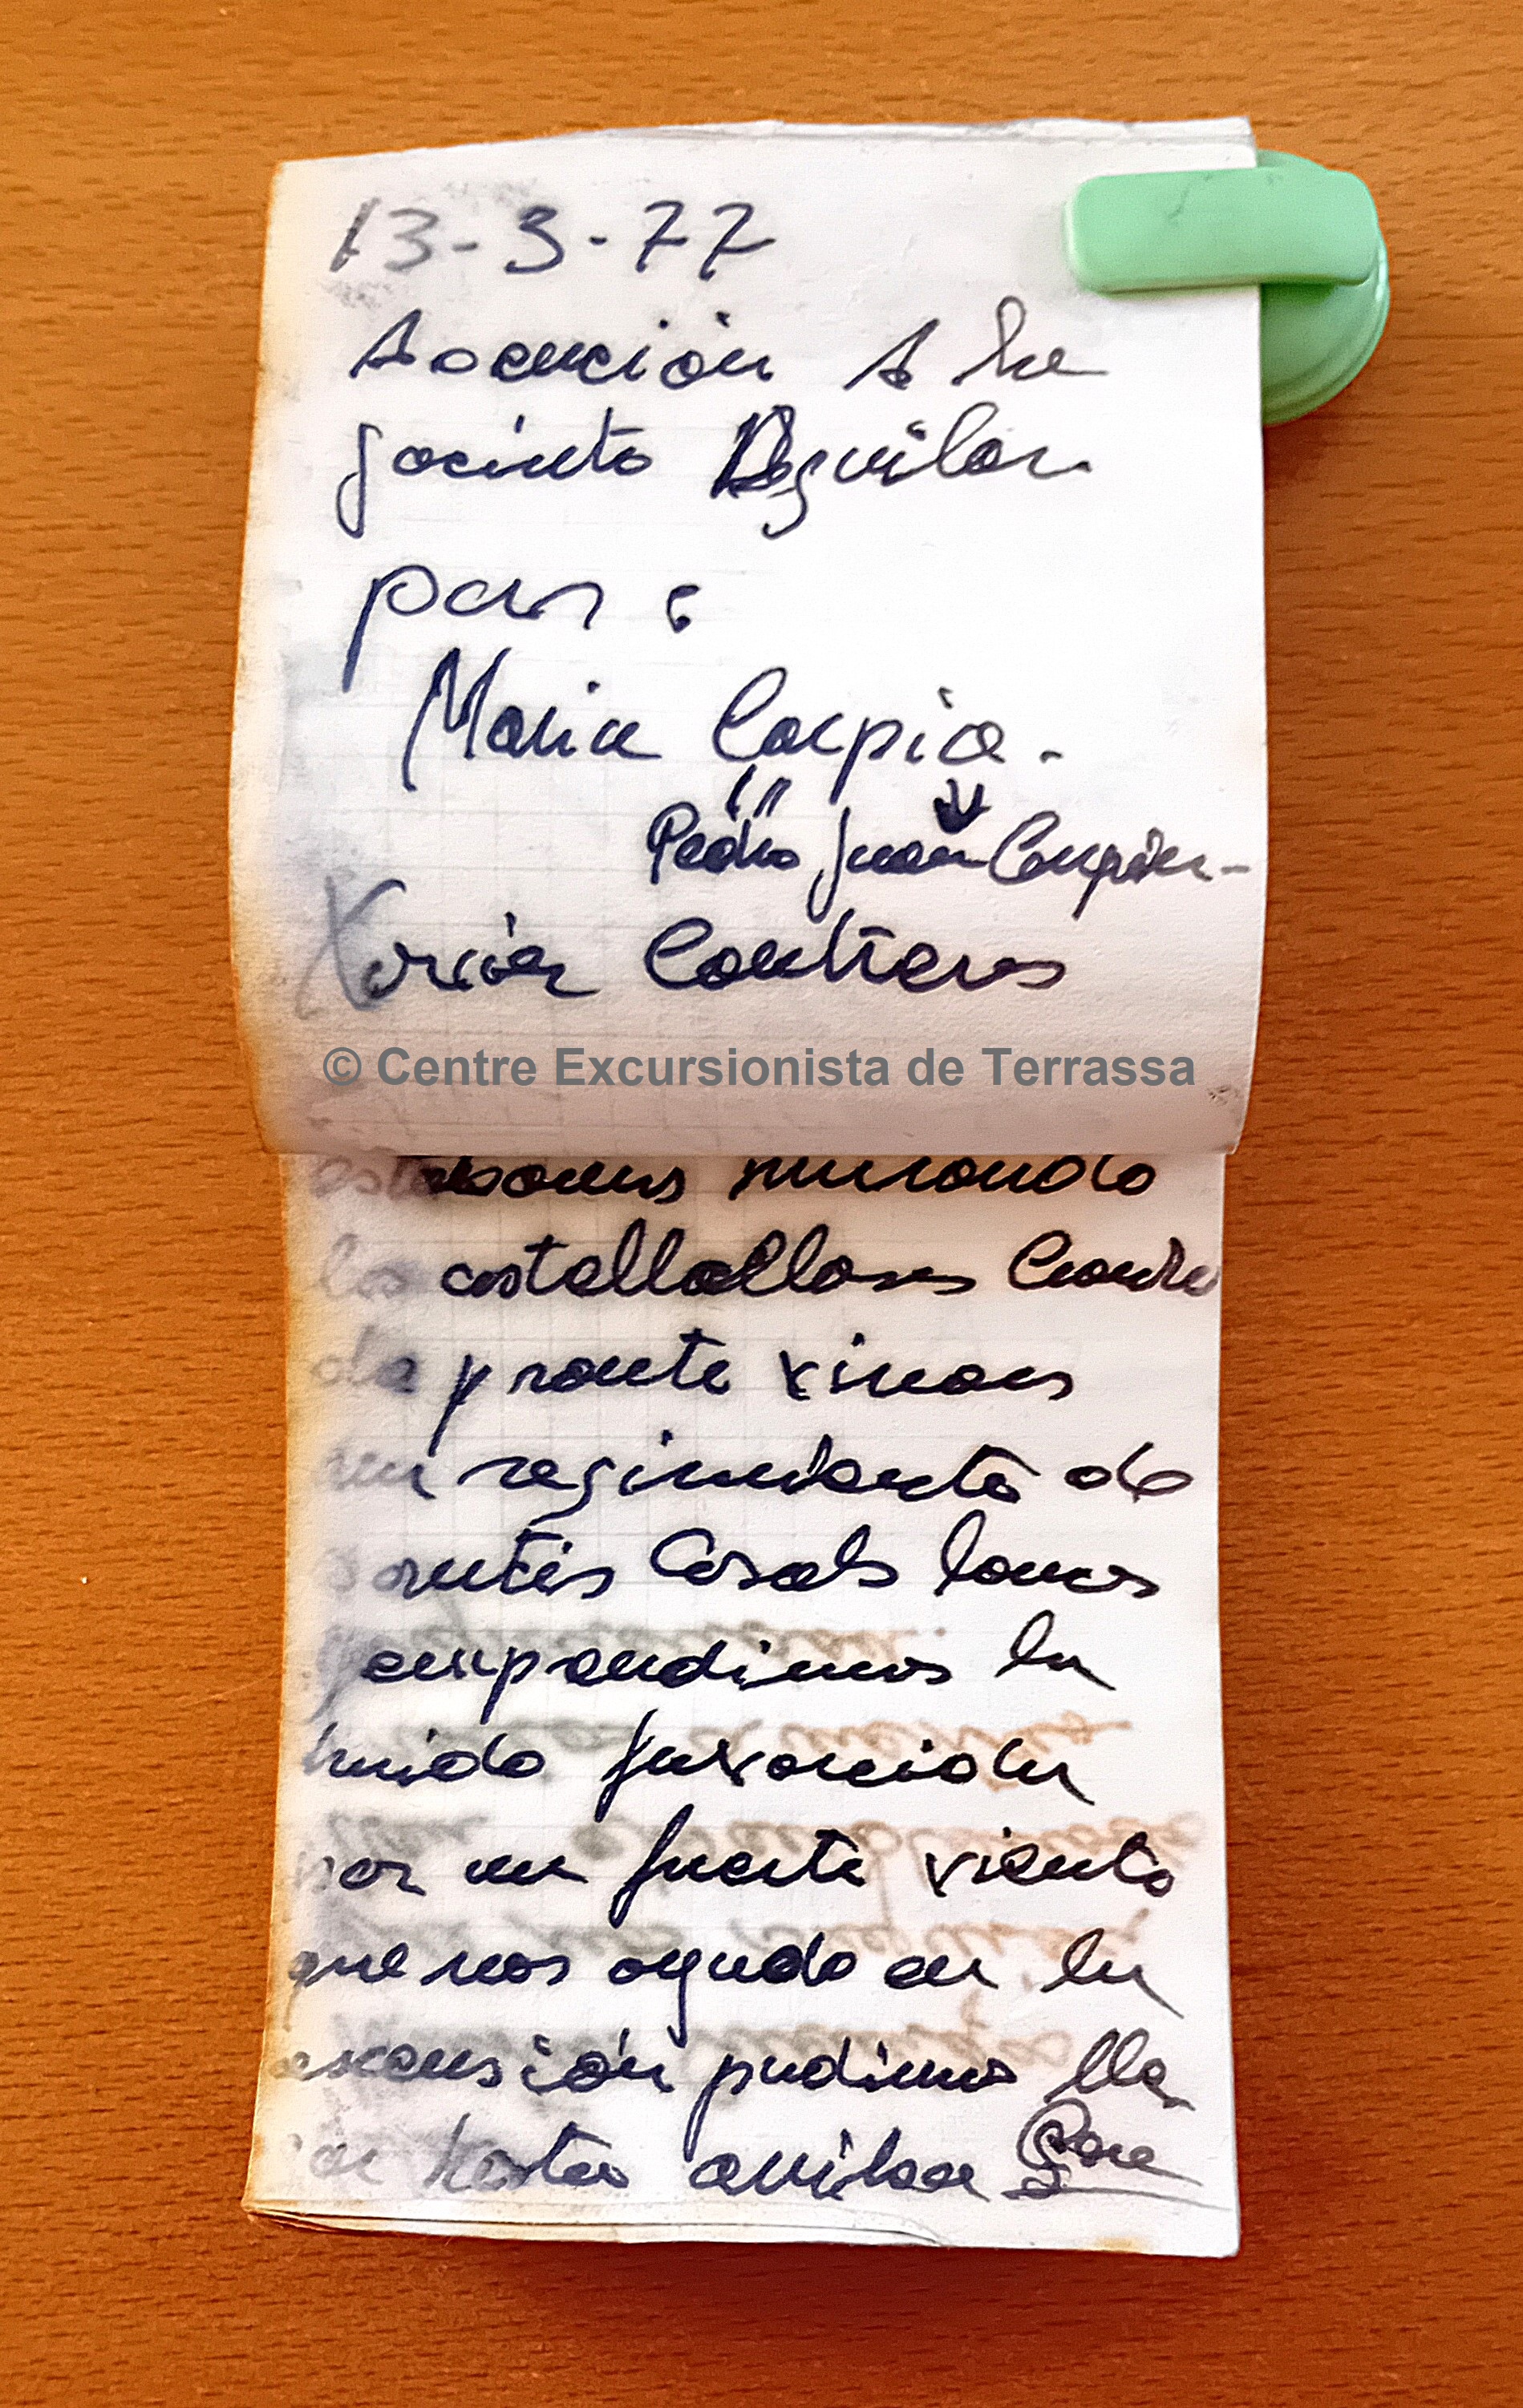 13-3-77
Ascención A la
Jacinto Aguilar
por:
Maria Carpio.
" Pedro Juan Carpio-
Xavier Contreras
© Centre Excursionista de Terrassa
estabamos mirando
los castellallones Cuando
de pronte vimos
un regimiento de
Casals
y emprendimos la
huida favorecida
por un fuerte viento
que nos ayudo en la
ascensión pudimos lle
gar hasta arriba